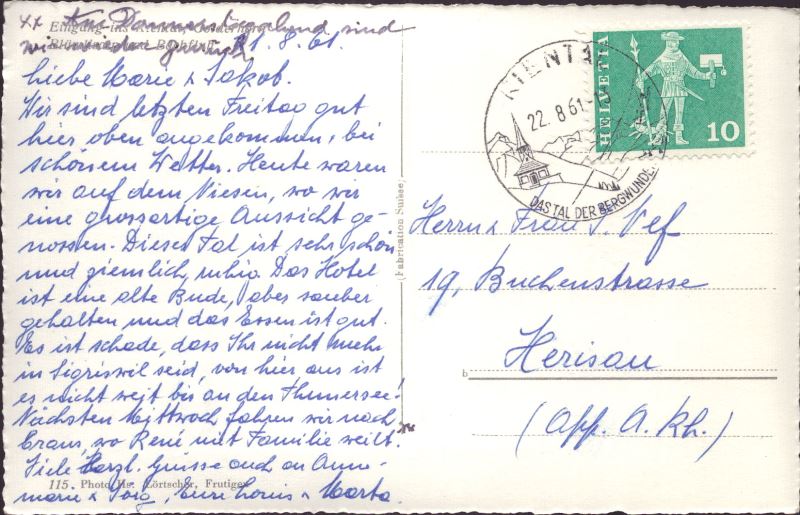 xx Am Donnerstagabend sind
wir wieder zurück
Eingang ins Kiental,
21.8.61.
Liebe Marie & Jakob.
Wir sind letzten Freitag gut
hier oben angekommen, bei
schönem Wetter. Heute waren
wir auf dem Niesen, wo wir
eine grossartige Aussicht ge-
nossen. Dieses Tal ist sehr schön
und ziemlich ruhig. Das Hotel
ist eine alte Bude, aber sauber
gehalten und das Essen ist gut.
Es ist schade, dass Ihr nicht mehr
in Sigriswil seid, von hier aus ist
es nicht weit bis an den Thunersee!
Nächsten Mittwoch fahren wir nach
Crans, wo René mit Familie weilt. xx
Viele Herzl. Grüsse auch an Anne-
marie & Jörg, Eure Louis & Marta.
115. Photo Hs. Zörtscher, Frutigen
(Fabrication Suisse)
KIENTAL
22.8.61-
DAS TAL DER BERGWUNDER
HELVETIA
10
Herrn & Frau J. Nef
19, Buchenstrasse
Herisau
b
(App. A. Rh.)